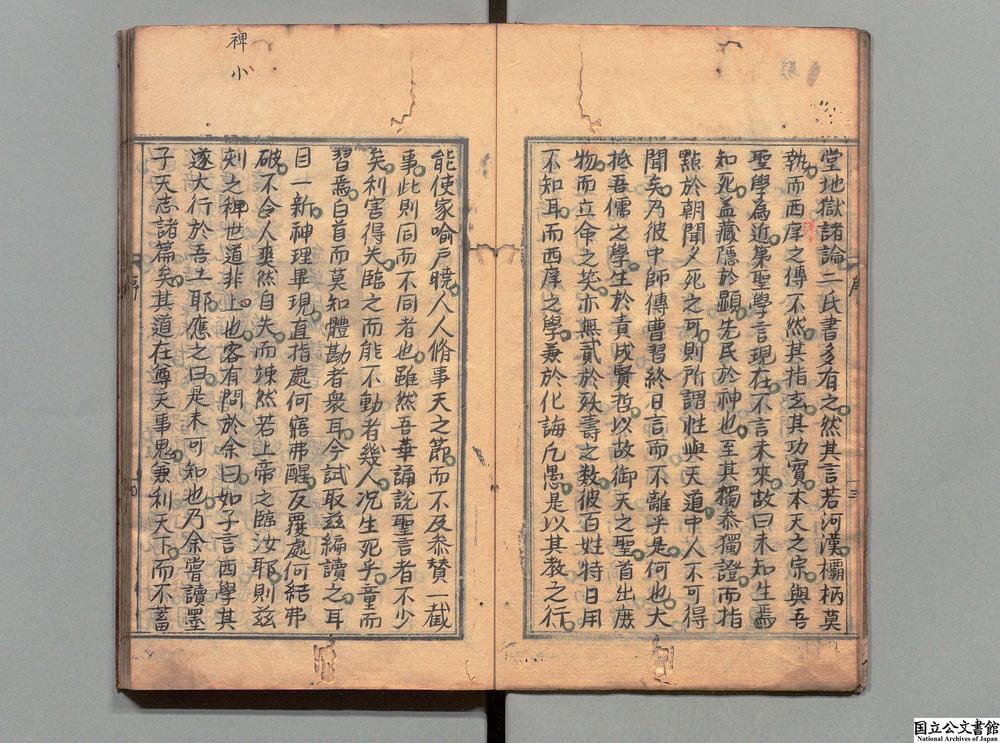 堂地獄諸論二氏書多有之然其言若河漢欛柄莫
執而西庠之傳不然其指玄其功實本天之宗與吾
聖學為近第聖學言現在不言未來故曰未知生焉
知死盖藏隱於顯先民於神也至其獨叅獨證而指
點於朝聞夕死之可則所謂性與天道中人不可得
聞矣乃彼中師傳曹習終日言而不離乎是何也大
抵吾儒之學生於責成賢哲以故御天之聖首出庶
物而立命之笑亦無貳於殀壽之数彼百姓特日用
不知耳而西庠之學兼於化誨凡愚是以其教之行
能使家喻户曉人人脩事天之節而不及叅賛一截
事此則同而不同者也雖然吾華誦説聖言者不少
矣利害得失臨之而能不動者幾人况生死乎童而
習焉白首而莫知體勘者衆耳今試取兹編讀之耳
目一新神理畢現直指處何寤弗醒反覆處何結弗
破不令人爽然自失而竦然若上帝之臨汝耶則兹
刻之稗世道非上也客有問於余曰如子言西學其
遂大行於吾土耶應之曰是未可知也乃余嘗讀墨
子天志諸篇矣其道在尊天事鬼兼利天下而不蓄
稗
小
序
三
序
国立公文書館
National Archives of Japan